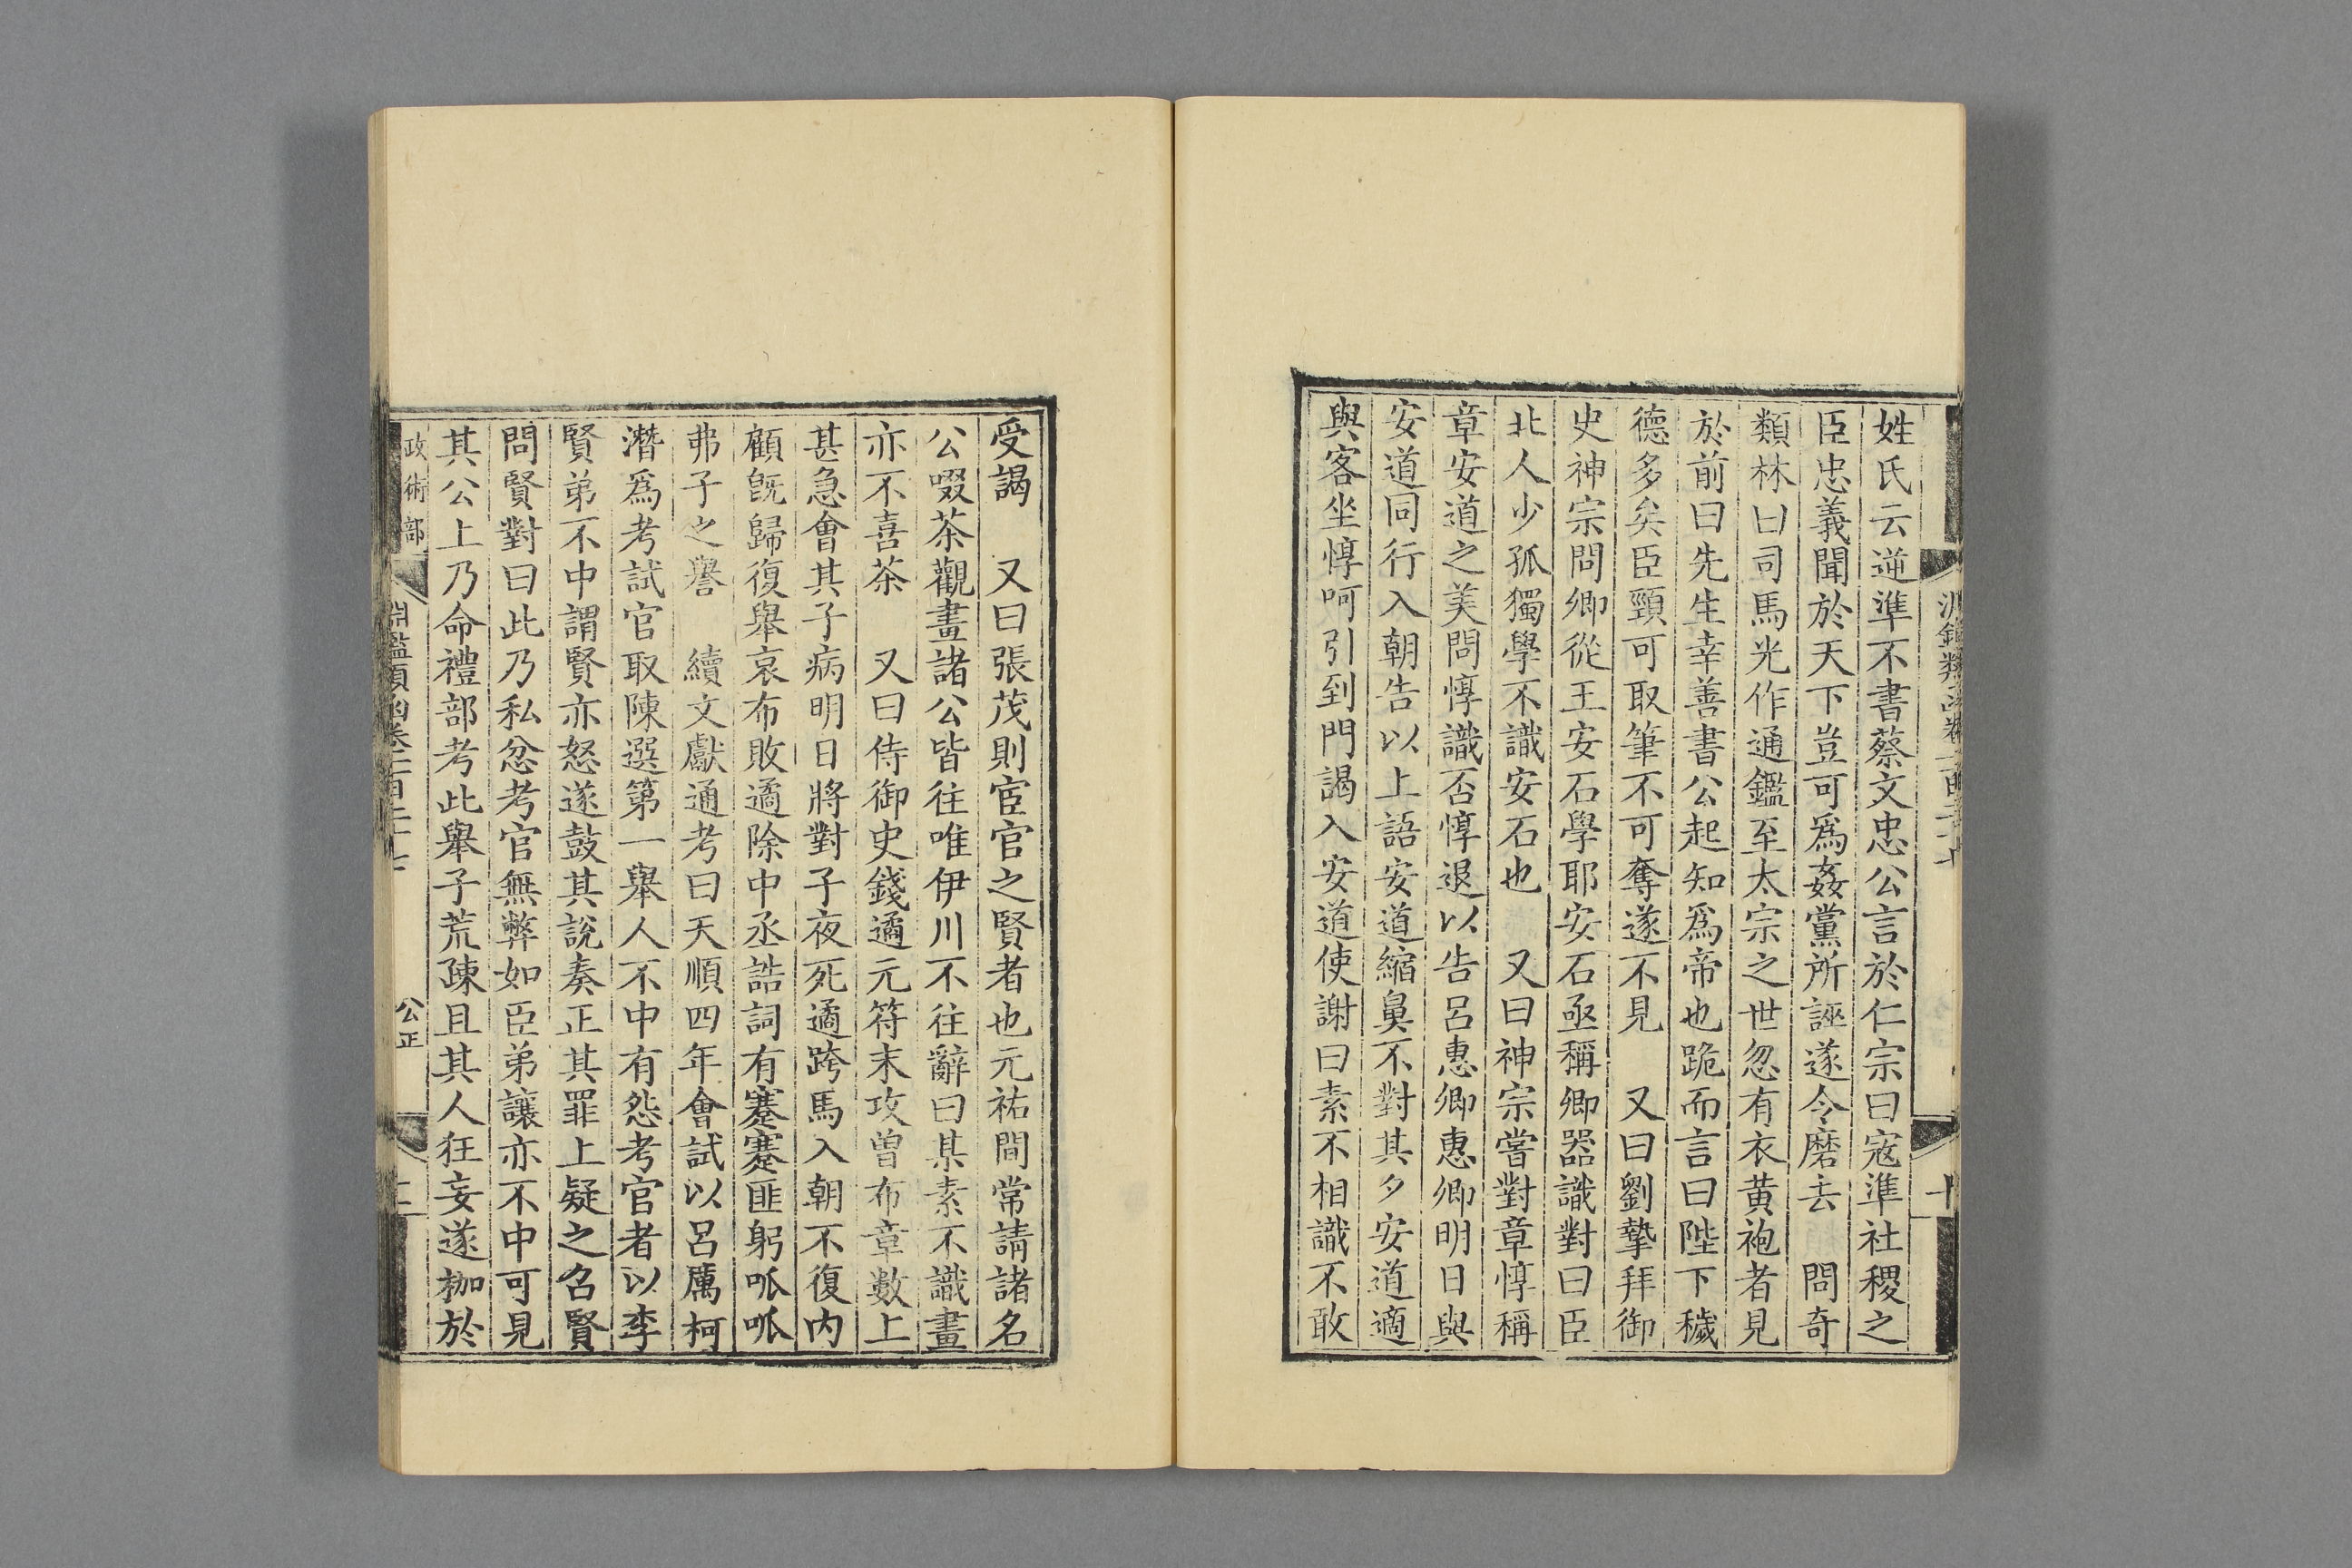 姓氏云逆準不書蔡文忠公言於仁宗曰寇準社稷之
臣忠義聞於天下豈可爲姦黨所誣遂令磨去　問奇
類林曰司馬光作通鑑至太宗之世忽有衣黄袍者見
於前曰先生幸善書公起知爲帝也跪而言曰陛下穢
德多矣臣頸可取筆不可奪遂不見　又曰劉摯拜御
史神宗問卿從王安石學耶安石亟稱卿器識對曰臣
北人少孤獨學不識安石也　又曰神宗嘗對章惇稱
章安道之美問惇識否惇退以告呂惠卿惠卿明日與
安道同行入朝告以上語安道縮鼻不對其夕安道適
與客坐惇呵引到門謁入安道使謝曰素不相識不敢
受謁　又曰張茂則宦官之賢者也元祐間常請諸名
公啜茶觀畫諸公皆往唯伊川不往辭曰某素不識畫
亦不喜茶　又曰侍御史錢遹元符末攻曾布章數上
甚急會其子病明日將對子夜死遹跨馬入朝不復内
顧旣歸復舉哀布敗遹除中丞誥詞有蹇蹇匪躬呱呱
弗子之譽　續文獻通考曰天順四年會試以呂厲柯
潛爲考試官取陳選第一舉人不中有怨考官者以李
賢弟不中謂賢亦怒遂鼓其說奏正其罪上疑之召賢
問賢對曰此乃私忿考官無弊如臣弟讓亦不中可見
其公上乃命禮部考此舉子荒疎且其人狂妄遂枷於
政術部
公正